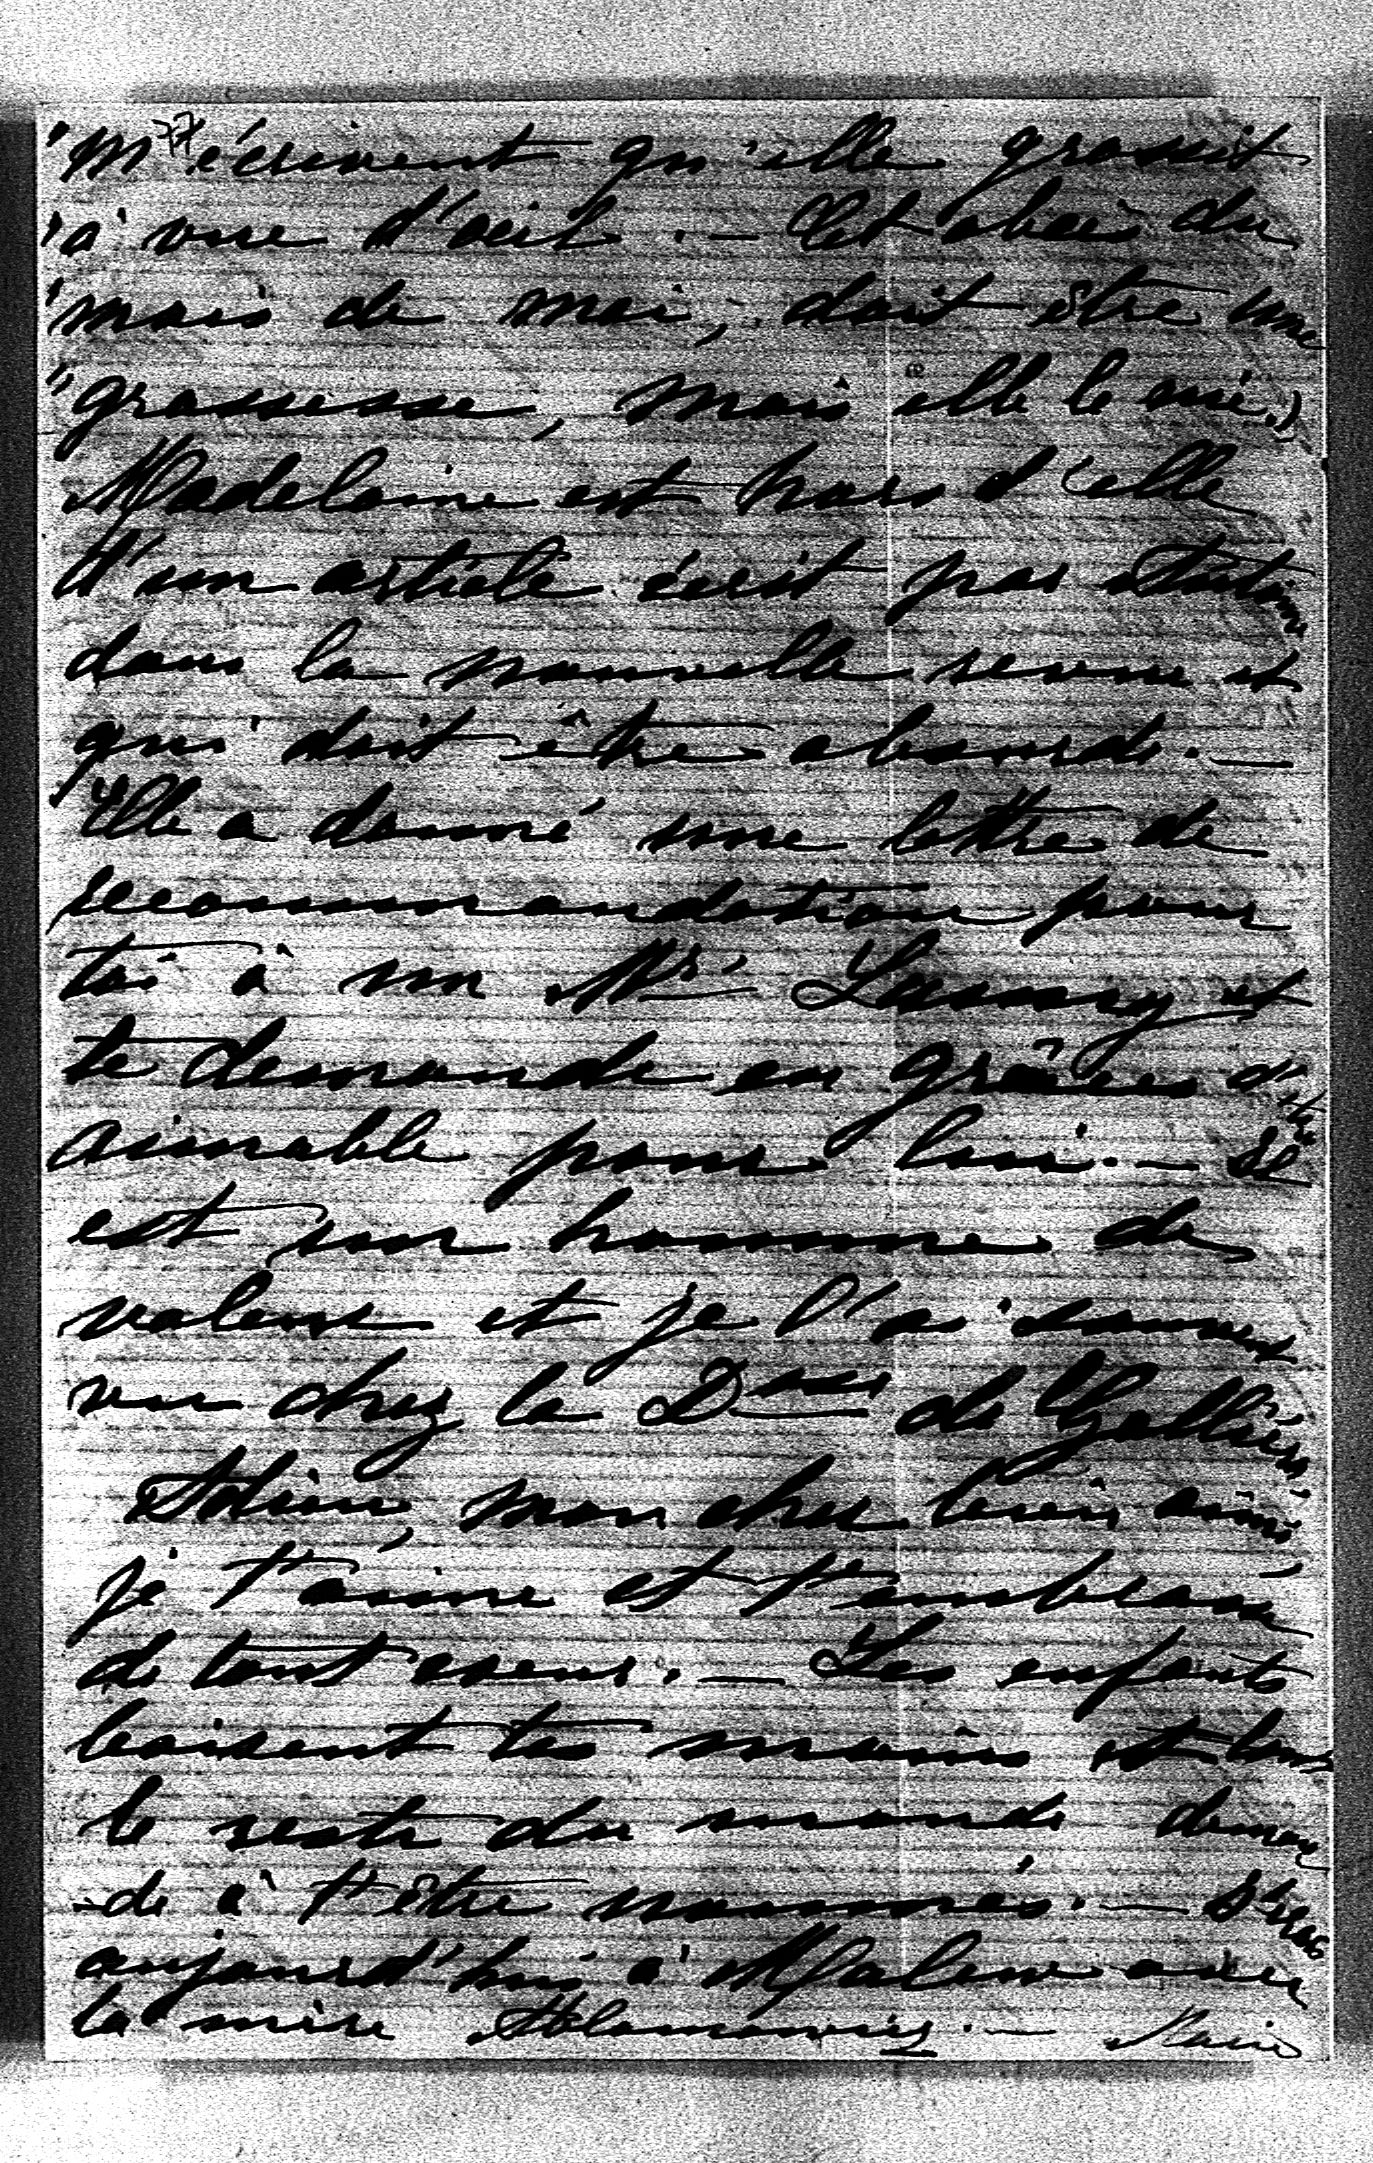 77
"m'écrivent qu'elle grossit
"à vue d'œil. — Cet abcès du
"mois de mai, doit être une
"grossesse, mais elle le nie.)
Madeleine est hors d'elle
d'un article écrit par Antoine
dans la nouvelle revue et
qui doit être absurde. —
Elle a donné une lettre de
recommandation pour
toi à un Mr. et
te demande en grâce d'être
aimable pour lui. — Il
est un homme de
valeur et je l'ai souvent
vu chez la Dsse de Gallièra
Adieu, mon cher bien aimé,
je t'aime et t'embrasse
de tout cœur. — Les enfants
baisent tes mains et tout
le reste du monde deman
-de à t'être nommés. —
aujourd'hui à avec
la mère — Marie